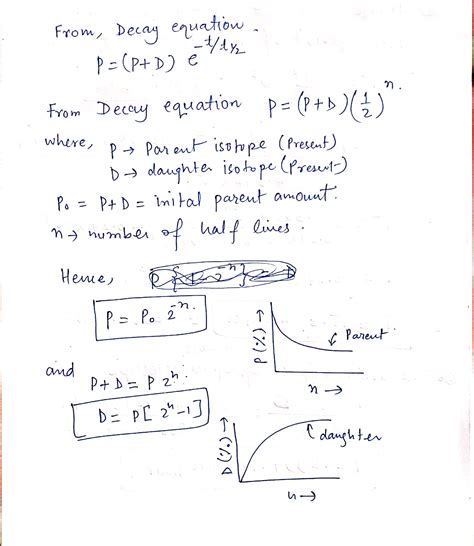 From, Decay equation.
P = (P+D) e^{-t/t_{1/2}}
From Decay equation P = (P+D) (1/2)^n.
where, P → Parent isotope (Present)
D → daughter isotope (Present)
P₀ = P+D = inital parent amount.
n → number of half lives.
Hence,
P = P₀ 2^{-n}.
P (%) →
Parent
n →
and P+D = P 2^n.
D = P[2^n - 1]
D (%) →
daughter
n →